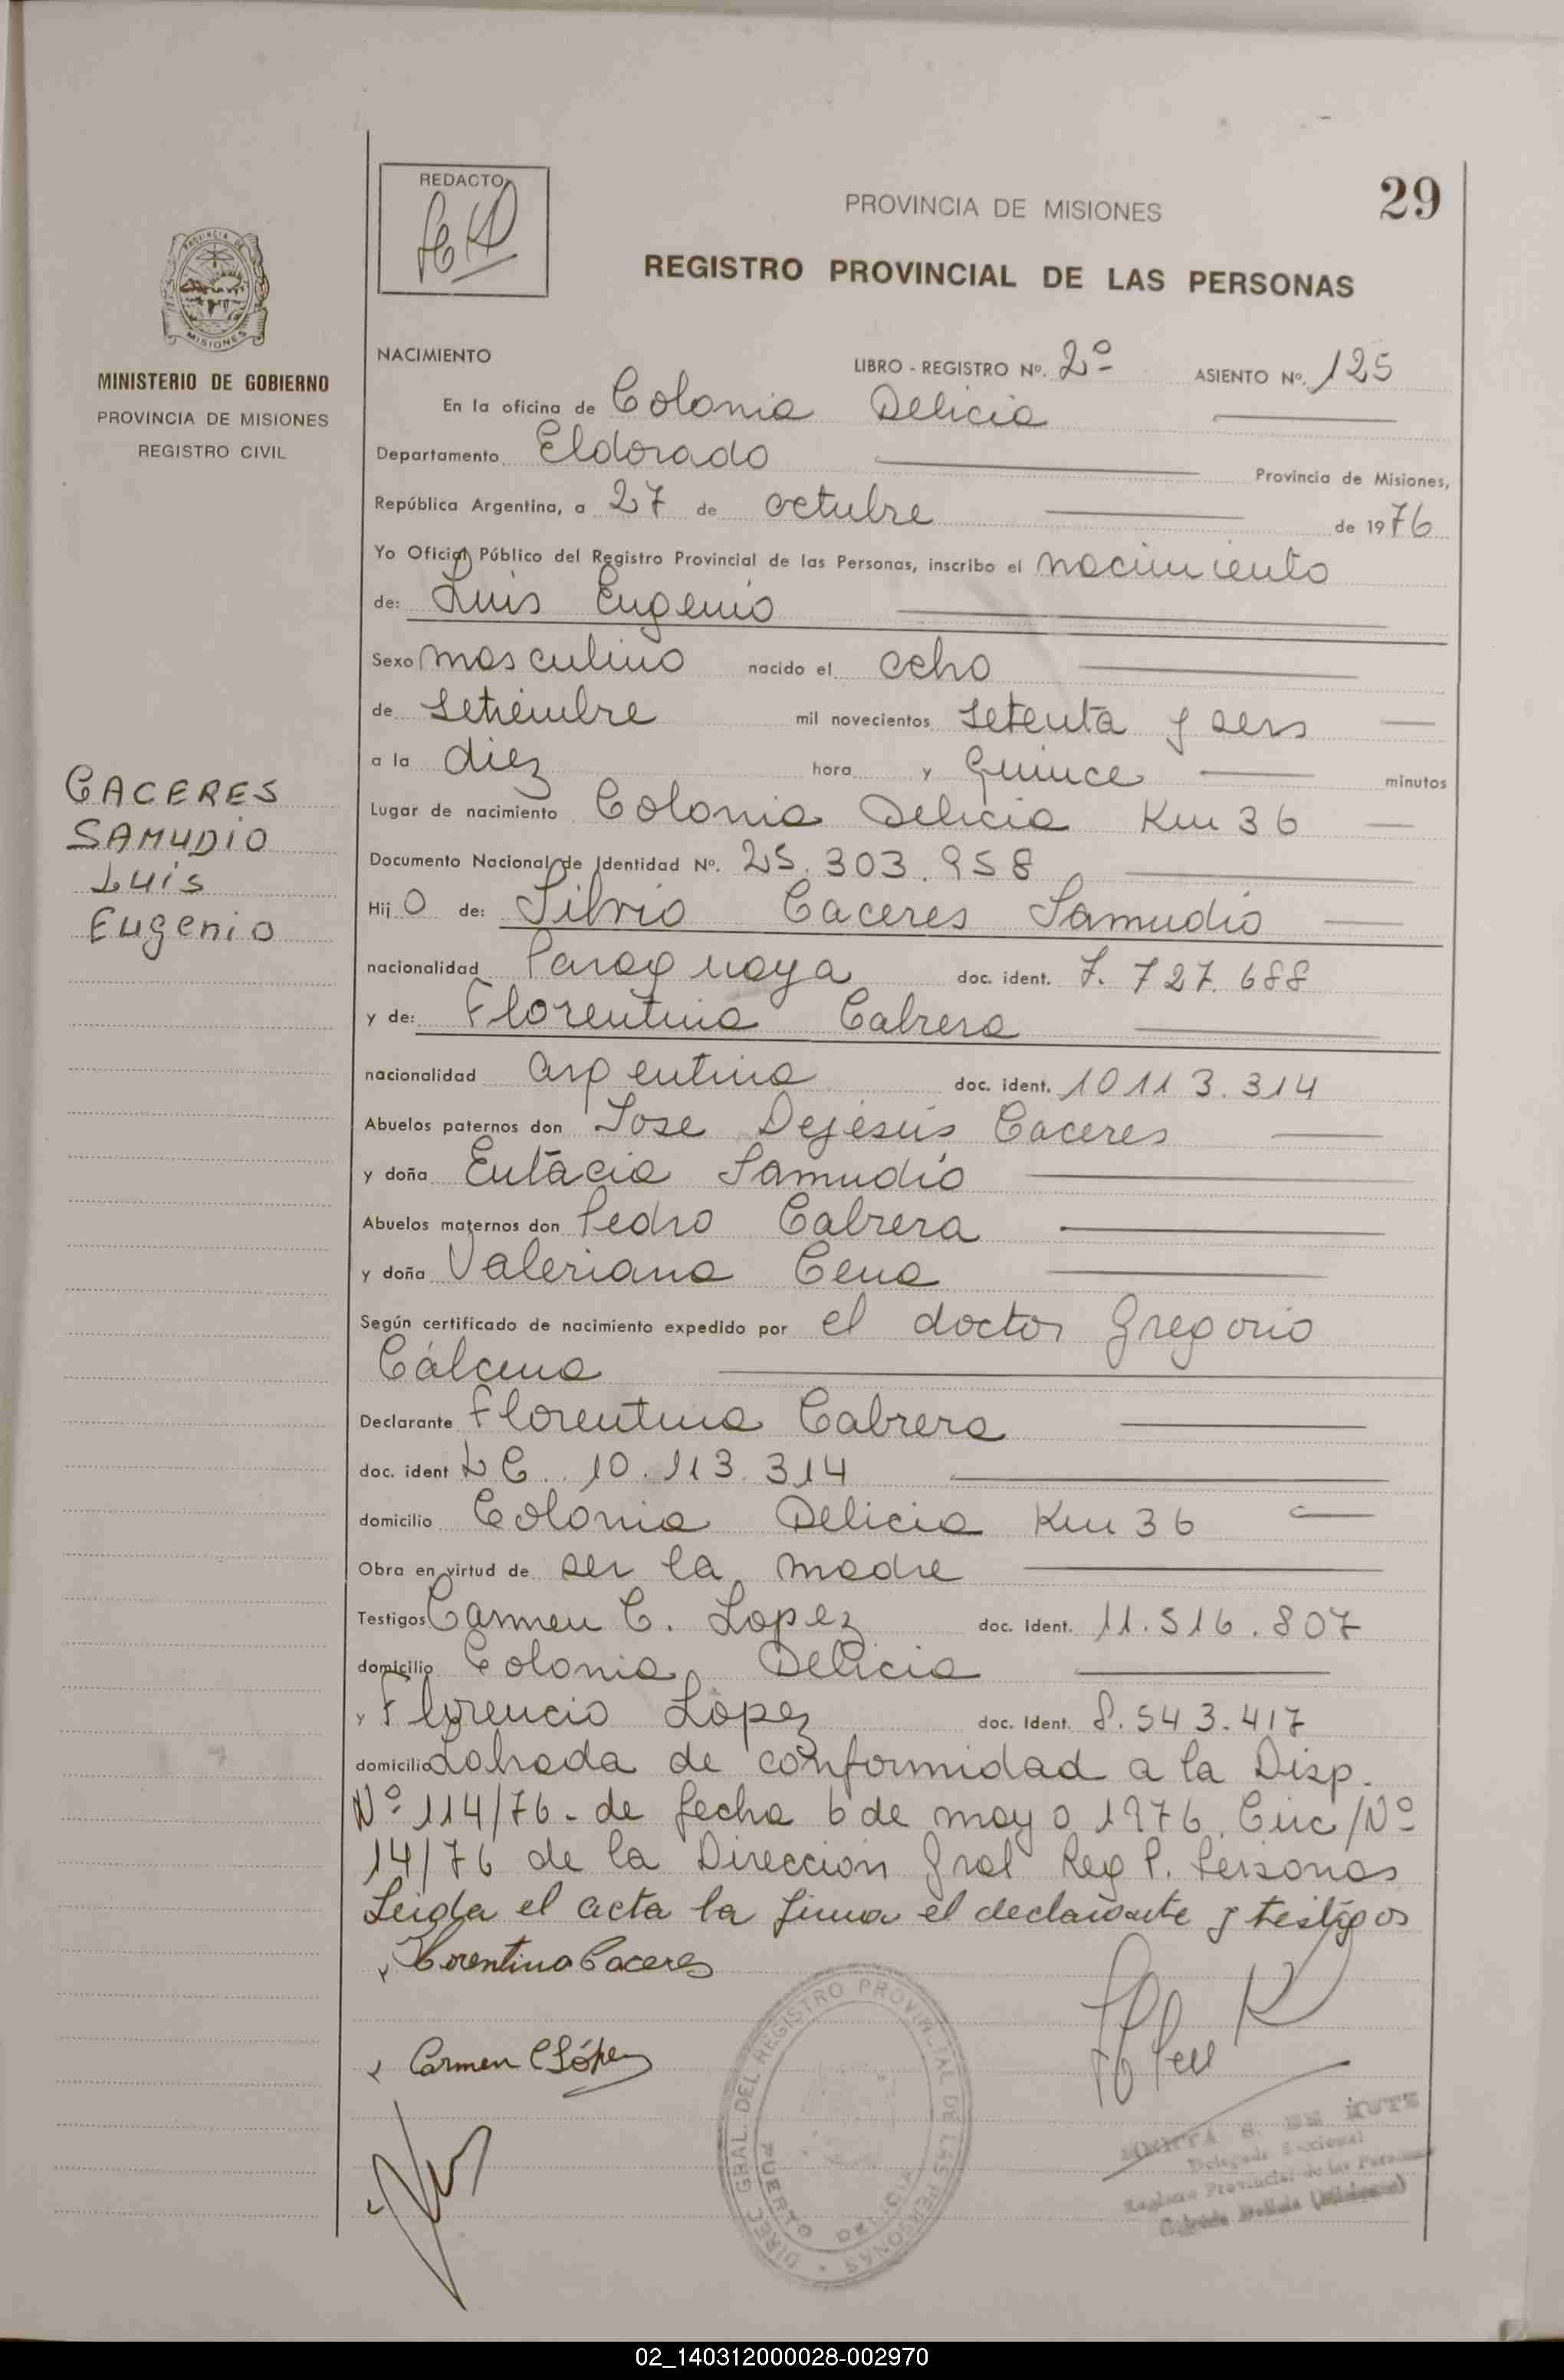 REDACTO
PROVINCIA DE MISIONES
29
REGISTRO PROVINCIAL DE LAS PERSONAS
PROVINCIA DE
MISIONES
MINISTERIO DE GOBIERNO
PROVINCIA DE MISIONES
REGISTRO CIVIL
CACERES
SAMUDIO
LUIS
Eugenio
NACIMIENTO
LIBRO - REGISTRO Nº. 2º ASIENTO Nº. 125
En la oficina de Colonia Delicia
Departamento Eldorado Provincia de Misiones,
República Argentina, a 27 de octubre de 1976
Yo Oficial Público del Registro Provincial de las Personas, inscribo el nacimiento
de: Luis Eugenio
Sexo masculino nacido el ocho
de setiembre mil novecientos setenta y seis
a la diez hora y Quince minutos
Lugar de nacimiento Colonia Delicia Km 36
Documento Nacional de Identidad Nº. 25.303.958
Hijo de: Silvio Caceres Samudio
nacionalidad Paraguaya doc. ident. 7.727.688
y de: Florentina Cabrera
nacionalidad argentina doc. ident. 10113.314
Abuelos paternos don Jose Dejesús Caceres
y doña Eutacia Samudio
Abuelos maternos don Pedro Cabrera
y doña Valeriana Cena
Según certificado de nacimiento expedido por el doctor Gregorio
Cálcena
Declarante Florentina Cabrera
doc. ident LC. 10.113.314
domicilio Colonia Delicia Km 36
Obra en virtud de ser la madre
Testigos Carmen C. Lopez doc. Ident. 11.516.807
domicilio Colonia Delicia
y Florencio López doc. Ident. 8.543.417
domicilio Labrada de conformidad a la Disp.
Nº 114/76 - de fecha 6 de mayo 1976. Circ/Nº
14/76 de la Dirección Gral Reg P. Personas
Leida el acta la firma el declarante y testigos
Florentina Caceres
Carmen C López
DIREC. GRAL. DEL REGISTRO PROVINCIAL DE LAS PERSONAS
PUERTO DELICIA
Delegada Seccional
Registro Provincial de las Personas
Colonia Delicia (Misiones)
02_140312000028-002970